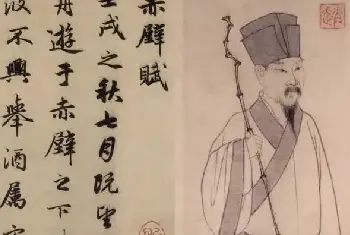 赤壁賦
壬戌之秋七月既望
舟遊于赤壁之下
波不興舉酒屬